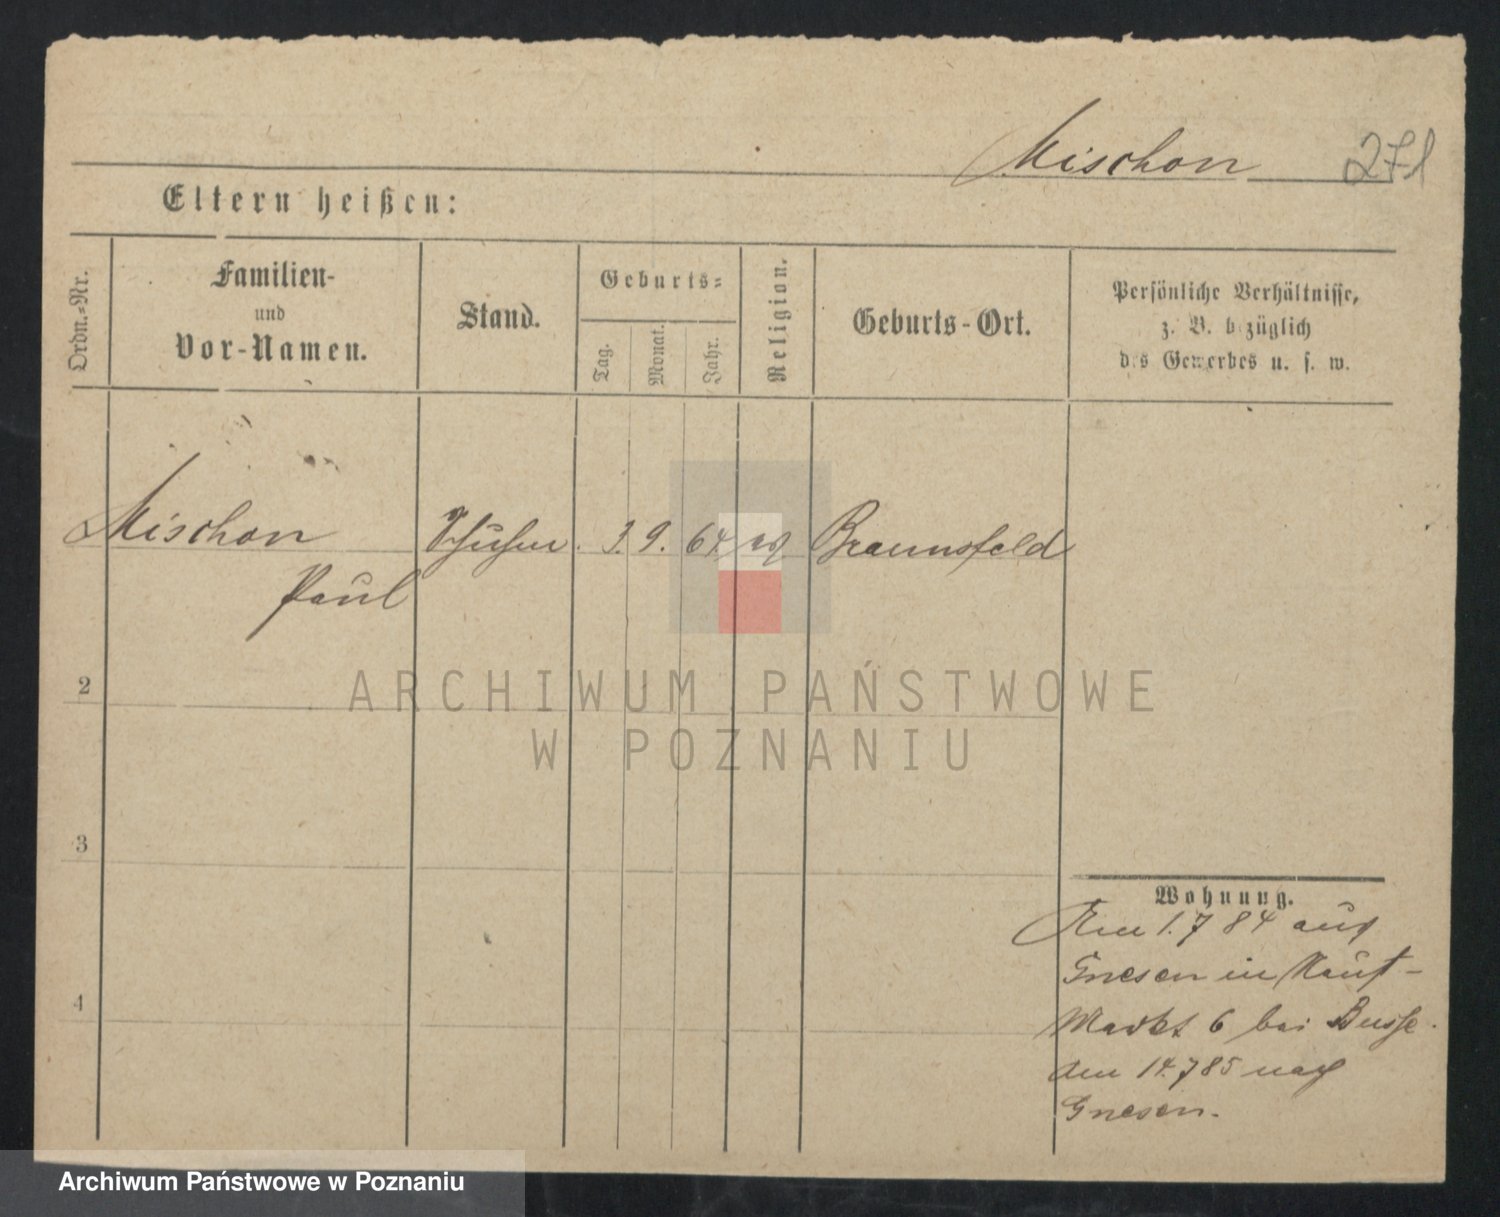 Mischon 271
Eltern heißen:
Ordn.-Nr.
Familien-
und
Vor-Namen.
Stand.
Geburts-
Tag.
Monat.
Jahr.
Religion.
Geburts-Ort.
Persönliche Verhältnisse,
z. B. bezüglich
des Gewerbes u. s. w.
Mischon 3. 9. 64 Braunsfeld
Paul
2
3
4
Wohnung.
Am 1.7 84 aus
Gnesen in
Markt 6 bei Busse.
am 14.7 85 nach
Gnesen.
ARCHIWUM PAŃSTWOWE
W POZNANIU
Archiwum Państwowe w Poznaniu